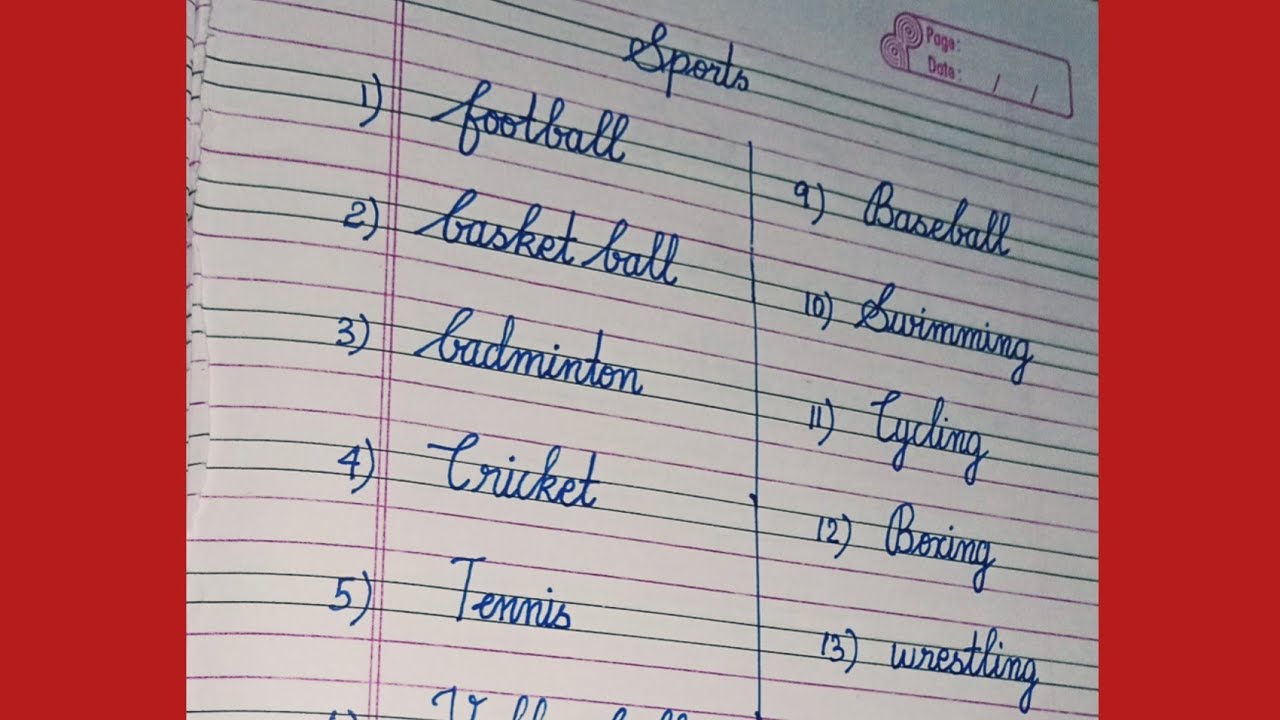 Sports
Page:
Date: / /
1) football
2) basket ball
3) badminton
4) Cricket
5) Tennis
9) Baseball
10) Swimming
11) Cycling
12) Boxing
13) wrestling